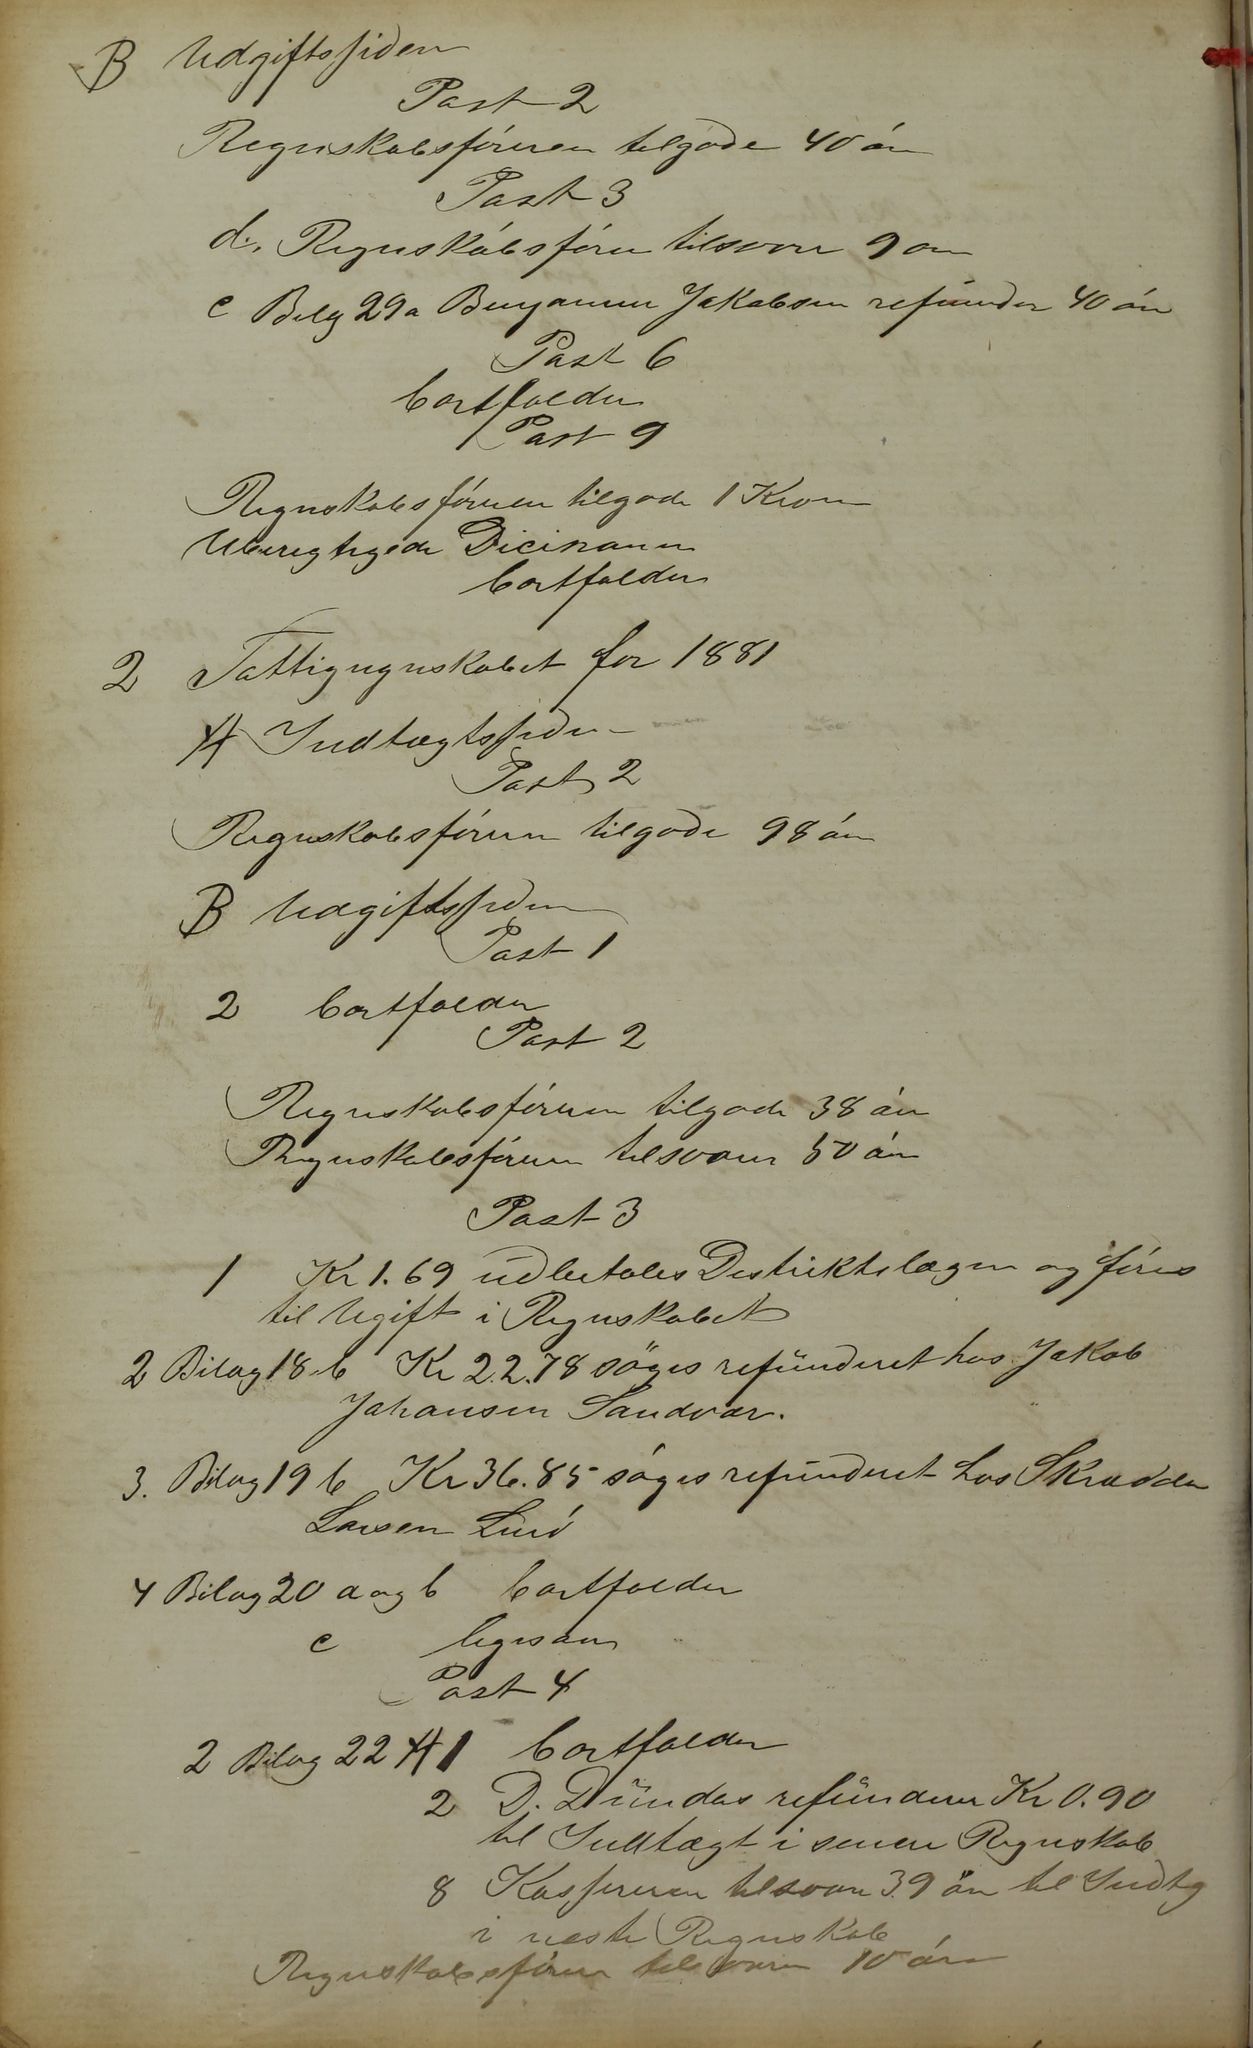 B Udgiftssiden
Post 2
Regnskabsföreren tilgode 40 öre
Post 3
d. Regnskabsförer tilsvare 9 öre
c Bilag 29a Benjamin Jakobsen refunder 40 öre
Post 6
bortfalder
Post 9
Regnskabsföreren tilgode 1 Krone
Uberegtigede
bortfalder
2 Fattigregnskabet for 1881
A Indtægtssiden
Post 2
Regnskabsföreren tilgode 98 öre
B Udgiftssiden
Post 1
2 bortfalder
Post 2
Regnskabsföreren tilgode 38 öre
Regnskabsföreren tilsvarer 50 öre
Post 3
1 Kr 1.69 udbetales Destriktslægen og föres
til Ugift i Regnskabet
2 Bilag 18 b Kr 22.78 söges refunderet hos Jakob
Johansen Sandvær.
3. Bilag 19 b Kr 36.85 söges refunderet hos Skrædder
Larsen Lurö
4 Bilag 20 a og b bortfalder
c ligesaa
Post 4
2 Bilag 22 A 1 bortfalder
2 D. Dundas refunderer Kr 0.90
til Indtægt i senere Regnskab
8 Kassereren tilsvare 39 öre til Indtg
i neste Regnskab
Regnskabsförer tilsvarer 10 öre